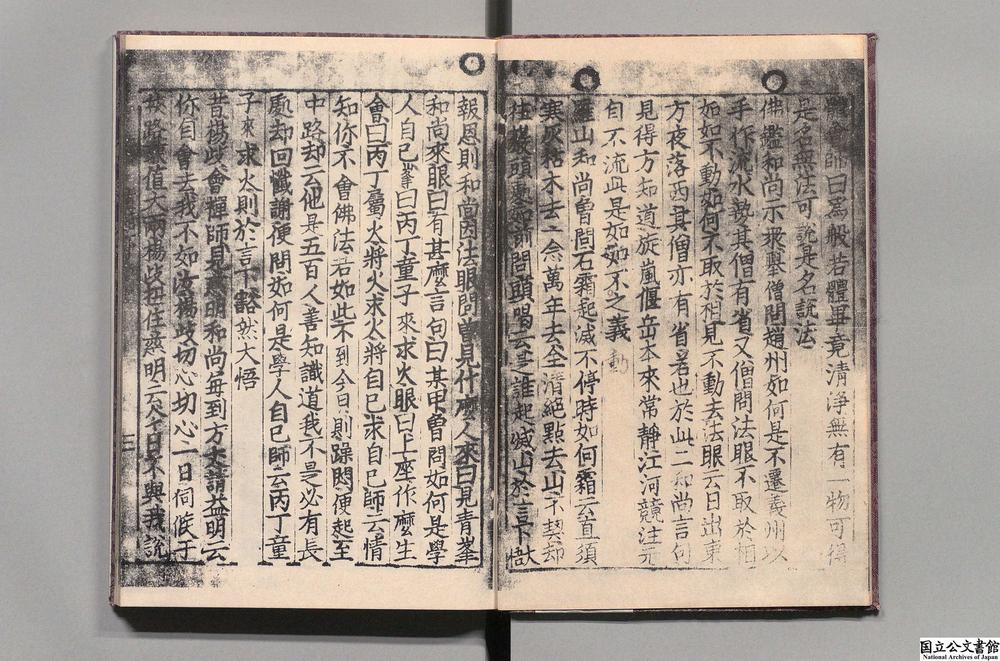 師曰爲般若體畢竟清淨無有一物可得
是名無法可說是名說法
佛鑑和尚示衆擧僧問趙州如何是不遷義州以
手作流水勢其僧有省又僧問法眼不取於相
如如不動如何不取於相見不動去法眼云日出東
方夜落西其僧亦有省若也於此二和尚言句
見得方知道旋嵐偃岳本來常靜江河競注元
自不流其是如如不之義
動
羅山和尚曾問石霜起滅不停時如何霜云直須
寒灰枯木去一念萬年去全淸絕點去山不契却
往巖頭處如前問頭喝云是誰起滅山於言下大
報恩則和尚因法眼問曾見什麼人來曰見青峯
和尚來眼曰有甚麼言句曰某甲曾問如何是學
人自己峯曰丙丁童子來求火眼曰上座作麼生
會曰丙丁屬火將火求火將自己求自己師云情
知你不會佛法若如此不到今日則躁悶便起至
中路却云他是五百人善知識道我不是必有長
處却回懺謝便問如何是學人自己師云丙丁童
子來求火則於言下豁然大悟
昔楊歧會禪師見慈明和尚每到方丈請益明云
你自會去我不如汝楊歧切心切心一日伺候于
路值大雨楊歧扭住慈明云今日不與我說
三
国立公文書館
National Archives of Japan